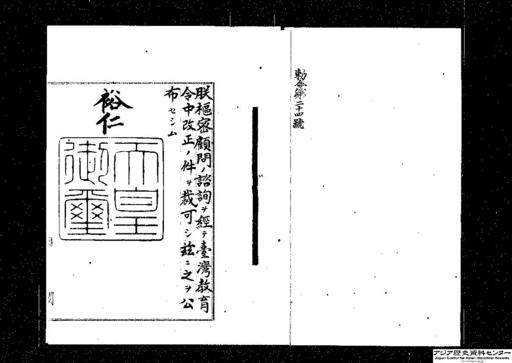 勅令第二十四號
朕樞密顧問ノ諮詢ヲ經テ臺灣教育
令中改正ノ件ヲ裁可シ茲ニ之ヲ公
布セシム
裕仁
天皇
御璽
アジア歴史資料センター
Japan Center for Asian Historical Records